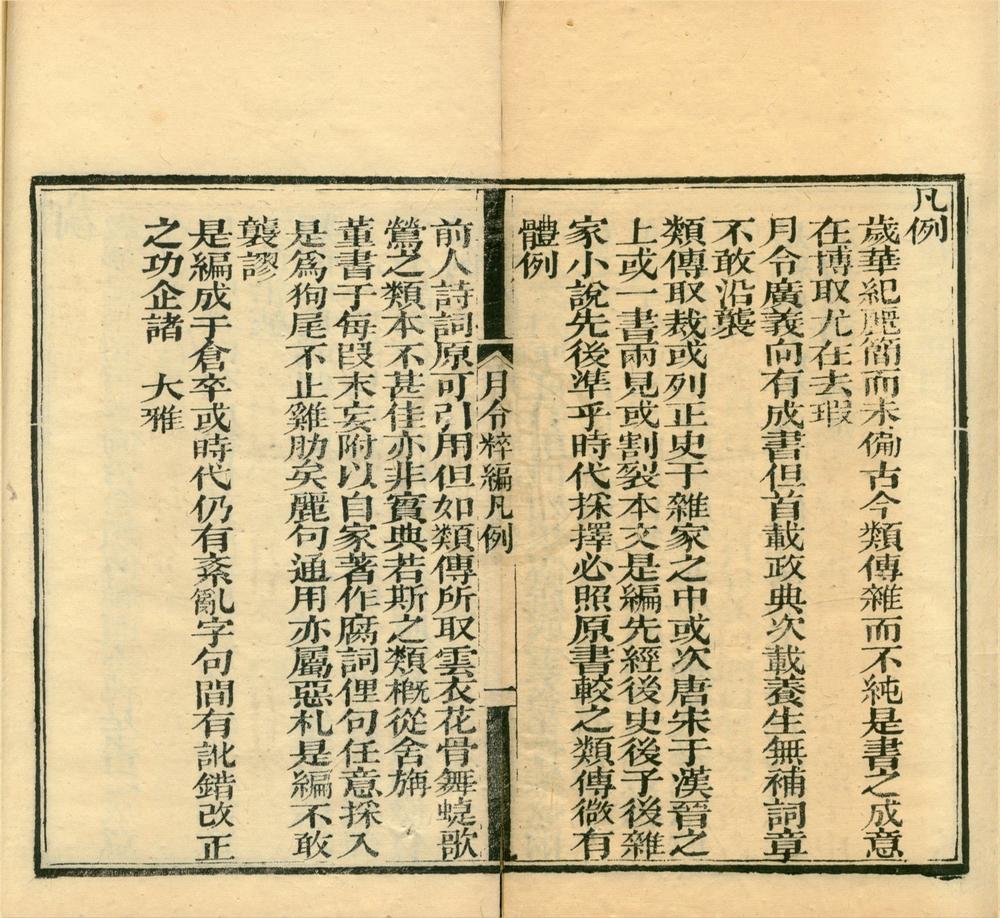 凡例
歲華紀麗簡而未徧古今類傳雜而不純是書之成意
在博取尤在去瑕
月令廣義向有成書但首載政典次載養生無補詞章
不敢沿襲
類傳取裁或列正史于雜家之中或次唐宋于漢晉之
上或一書兩見或割裂本文是編先經後史後子後雜
家小說先後準乎時代採擇必照原書較之類傳微有
體例
月令粹編凡例
一
前人詩詞原可引用但如類傳所取雲衣花骨舞蜨歌
鶯之類本不甚佳亦非實典若斯之類槪從舍旃
董書于每段末妄附以自家著作腐詞俚句任意採入
是爲狗尾不止雞肋矣麗句通用亦屬惡札是編不敢
襲謬
是編成于倉卒或時代仍有紊亂字句間有訛錯改正
之功企諸　大雅